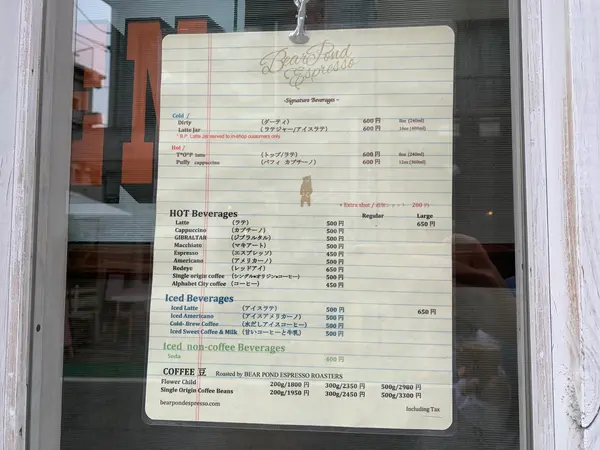 Bear Pond
Espresso
-Signature Beverages-
Cold /
Dirty (ダーティ) 600円 8oz (240ml)
Latte Jar (ラテジャー/アイスラテ) 600円 16oz (480ml)
Hot /
T*O*P latte (トップ/ラテ) 600円 8oz (240ml)
Puffy cappuccino (パフィ カプチーノ) 600円 12oz (360ml)
+ Extra shot / 200円
HOT Beverages Regular Large
Latte (ラテ) 500円 650円
Cappuccino (カプチーノ) 500円
GIBRALTAR (ジブラルタル) 500円
Macchiato (マキアート) 500円
Espresso (エスプレッソ) 450円
Americano (アメリカーノ) 500円
Redeye (レッドアイ) 650円
Single origin coffee (シングル•オリジン•コーヒー) 500円
Alphabet City coffee (コーヒー) 450円
Iced Beverages
Iced Latte (アイスラテ) 500円 650円
Iced Americano (アイスアメリカーノ) 500円
Cold-Brew Coffee (水だしアイスコーヒー) 500円
Iced Sweet Coffee & Milk (甘いコーヒーと牛乳) 500円
Iced non-coffee Beverages
Soda 600円
COFFEE 豆 Roasted by BEAR POND ESPRESSO ROASTERS
Flower Child 200g/1800円 300g/2350円 500g/2980円
Single Origin Coffee Beans 200g/1950円 300g/2450円 500g/3300円
bearpondespresso.com Including Tax